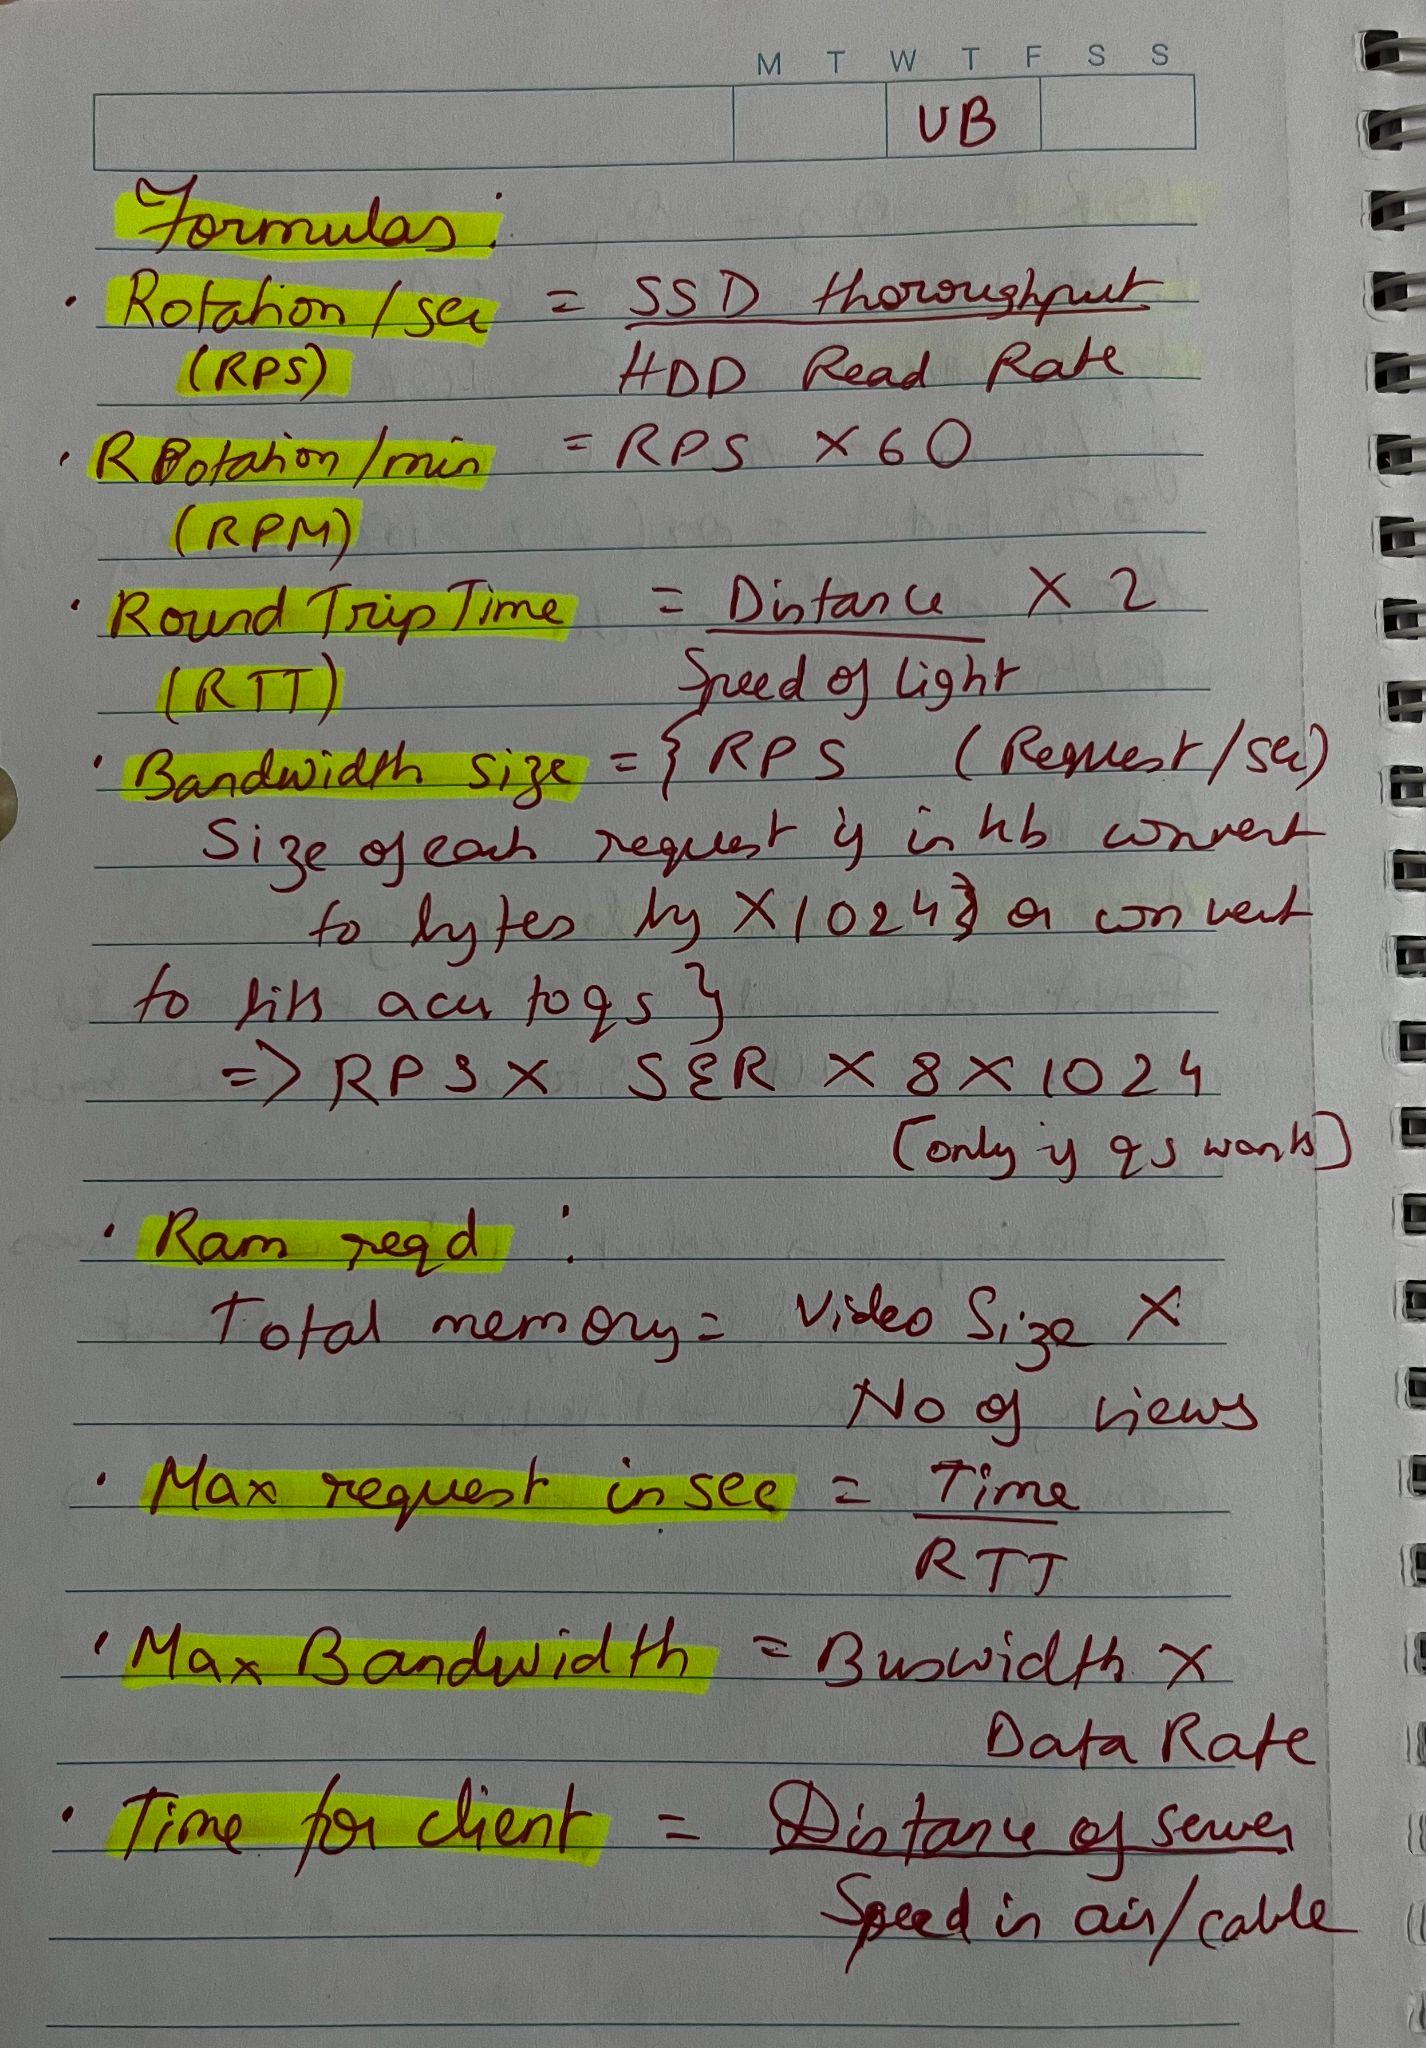 M T W T F S S
UB
Formulas:
· Rotation/sec = SSD thoroughput
(RPS) HDD Read Rate
· R Rotation/min = RPS X 60
(RPM)
· Round Trip Time = Distance X 2
(RTT) Speed of light
· Bandwidth size = { RPS (Request/sec)
Size of each request if in kb convert
to bytes by X 1024} or convert
to bits acc to qs }
=> RPS X SER X 8 X 1024
(only if qs wants)
· Ram reqd :
Total memory = Video Size X
No of views
· Max request in sec = Time
RTT
· Max Bandwidth = Buswidth X
Data Rate
· Time for client = Distance of server
Speed in air/cable